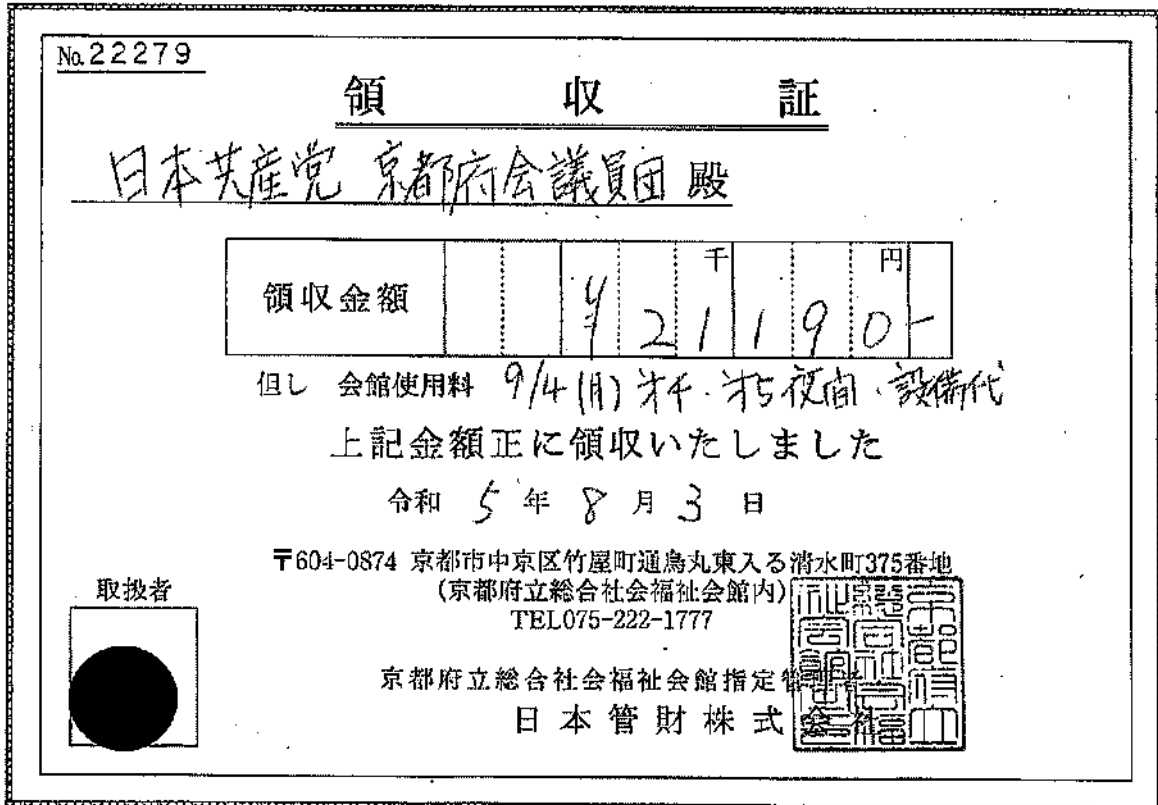 No.22279
領収証
日本共産党 京都府会議員団 殿
千 円
領収金額 ¥21190-
但し 会館使用料 9/4(月) 才4・才5 夜間・設備代
上記金額正に領収いたしました
令和 5 年 8 月 3 日
〒604-0874 京都市中京区竹屋町通烏丸東入る清水町375番地
(京都府立総合社会福祉会館内)
TEL075-222-1777
取扱者
京都府立総合社会福祉会館指定管理者
日本管財株式会社